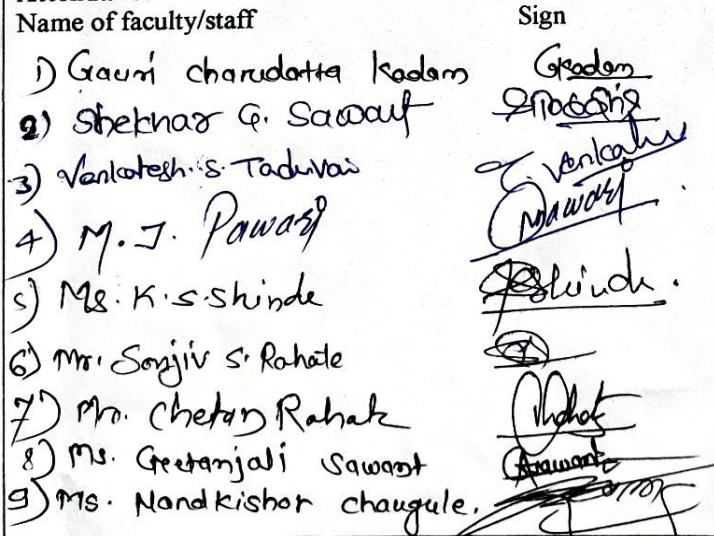 Name of faculty/staff Sign
1) Gauri charudatta Kadam GKadam
2) Shekhar G. Sawant
3) Venkatesh. S. Taduvai Venkatesh
4) M. J. Pawar Pawar
5) Ms. K. S. Shinde Shinde.
6) Mr. Sanjiv S. Rahate
7) Mr. Chetan Rahate
8) Ms. Geetanjali Sawant Gsawant
9) Ms. Nandkishor chaugule.